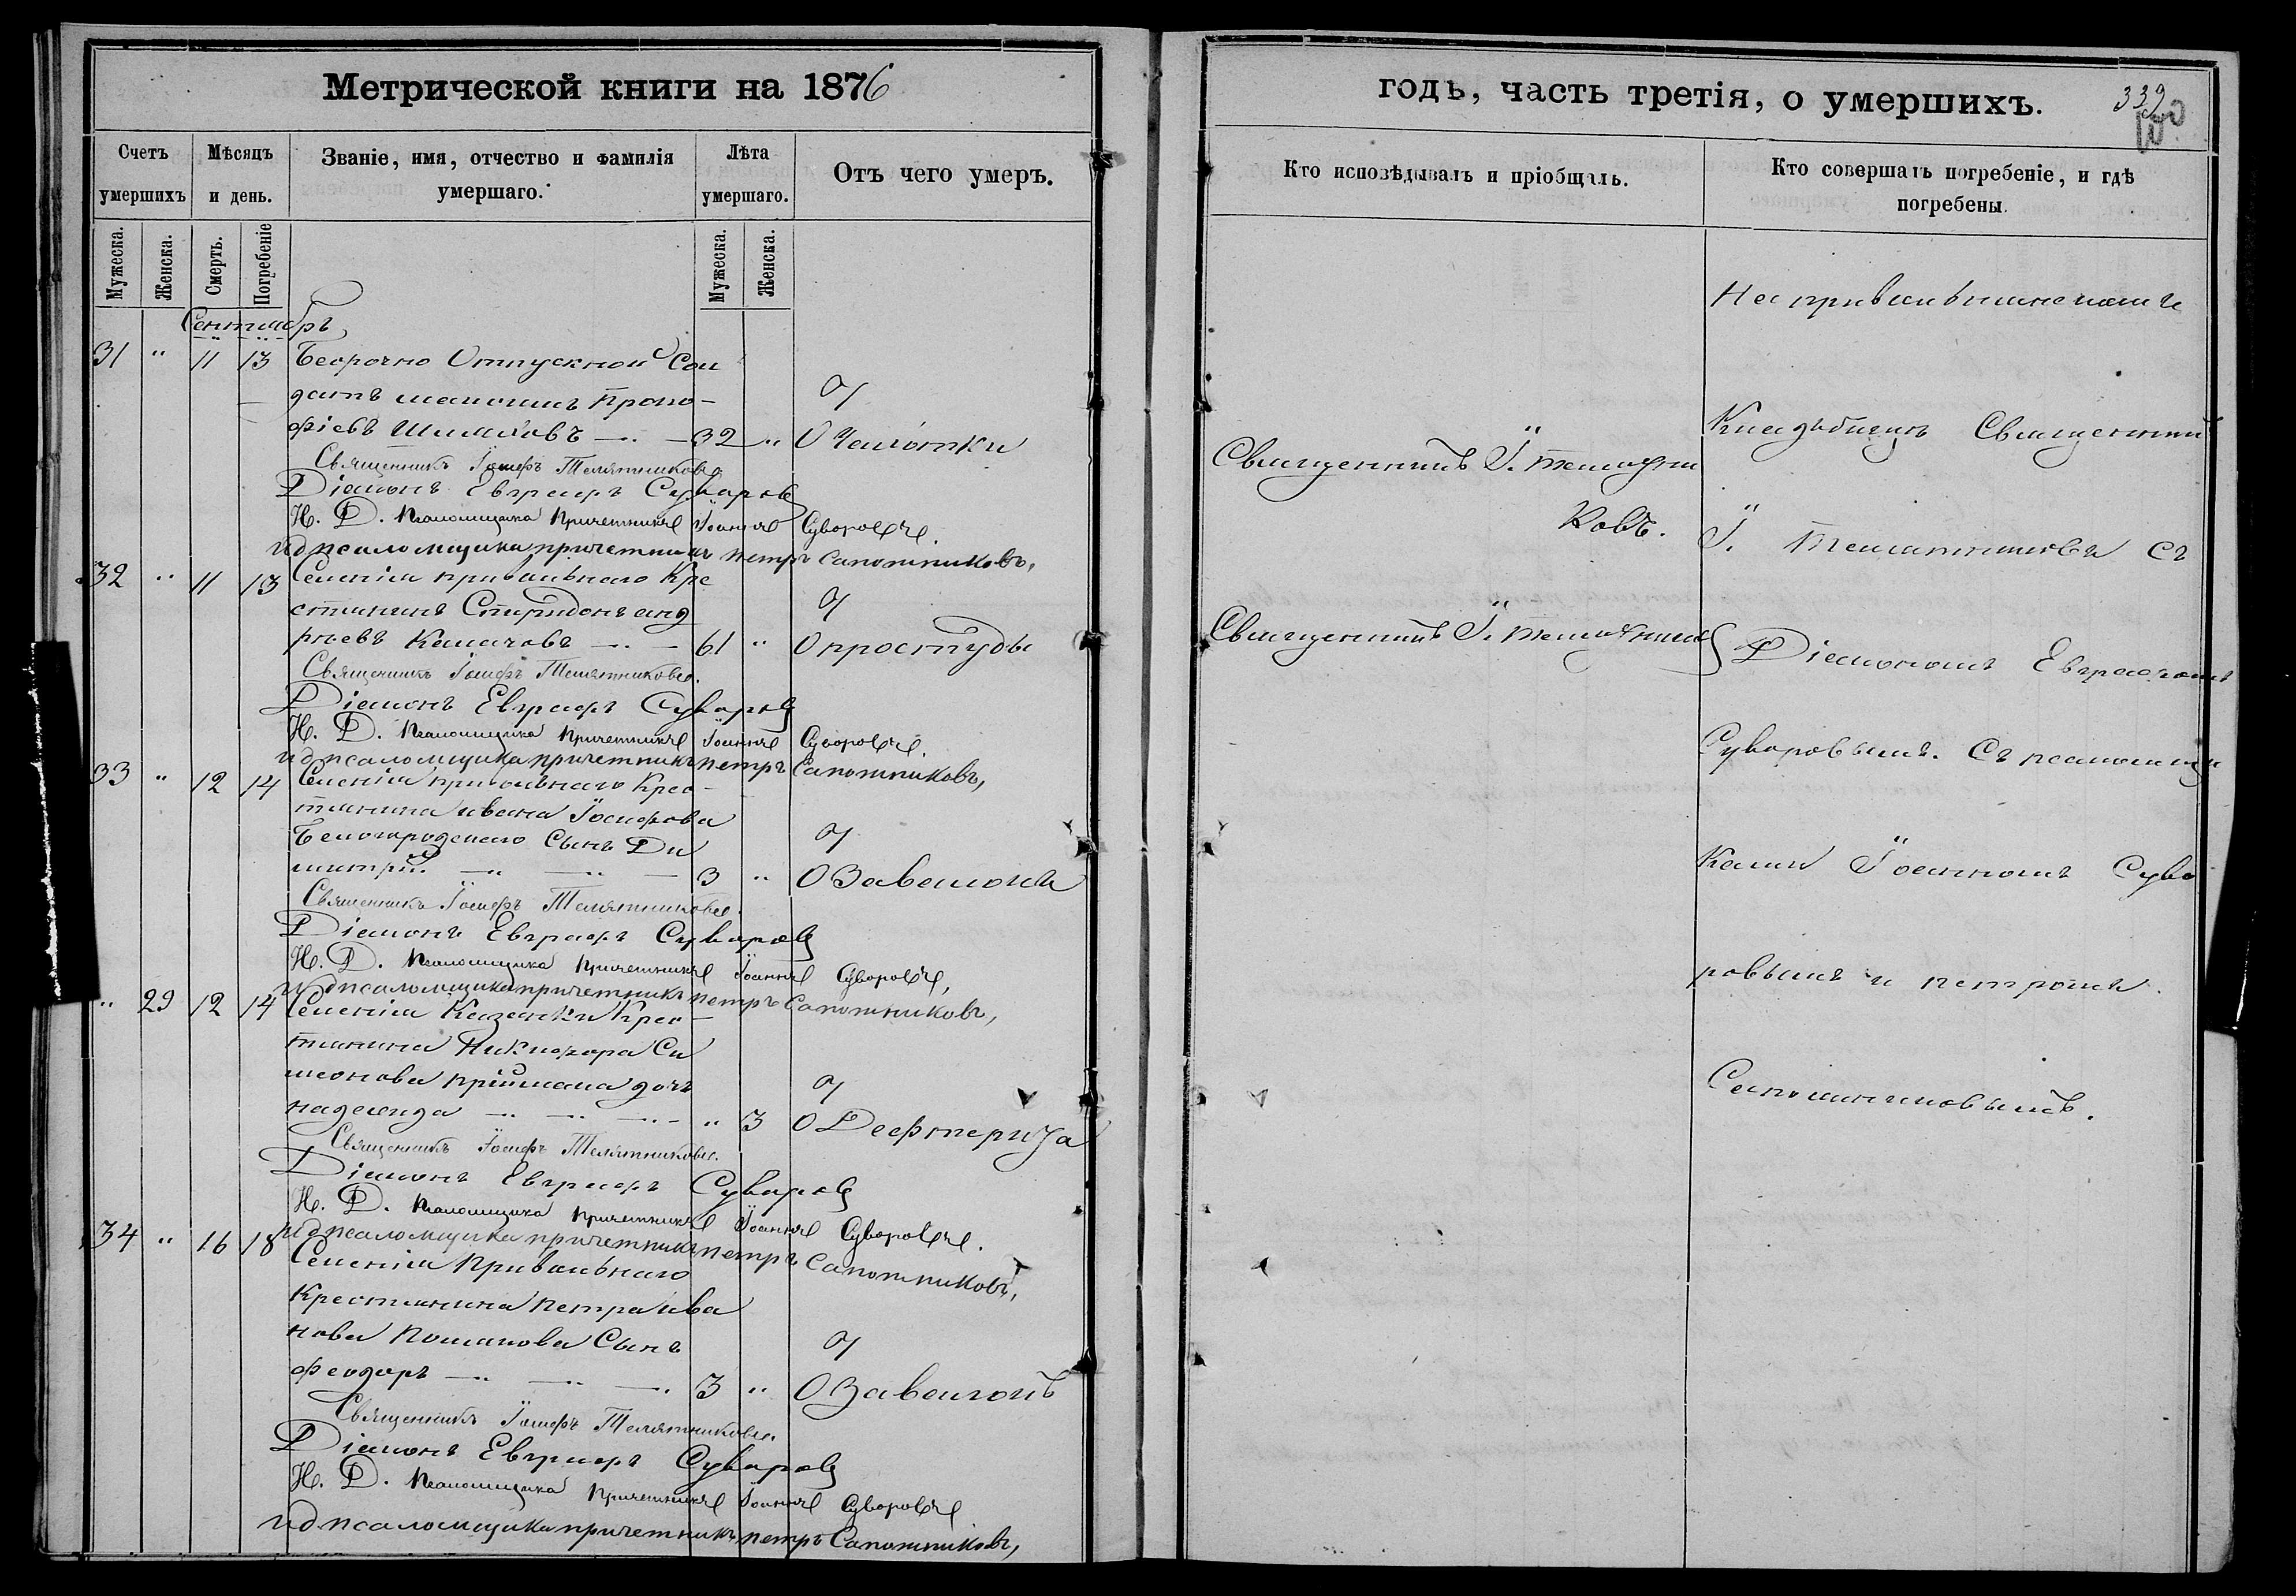 Метрической книги на 1876
Счетъ умершихъ
Мѣсяцъ и день.
Званіе, имя, отчество и фамилія умершаго.
Лѣта умершаго.
Отъ чего умеръ.
Мужеска.
Женска.
Смерть.
Погребеніе
Мужеска.
Женска.
Сентябрь
31 " 11 13 Безсрочно Отпускной Сол
датъ Проко-
фіевъ — 32 " О Чахотки
Священникъ Іосифъ Телятниковъ.
Діаконъ Евграфъ Суворовъ
И. Д. Псаломщика Причетникъ Іоаннъ Суворовъ.
ид псаломщика причетникъ петръ Сапожниковъ,
32 " 11 13 Селенія привольнаго Кре
стьянинъ Спиридонъ анд
рѣевъ Калачовъ — 61 " О простуды
Священникъ Іосифъ Телятниковъ.
Діаконъ Евграфъ Суворовъ
И. Д. Псаломщика Причетникъ Іоаннъ Суворовъ.
ид псаломщика причетникъ петръ Сапожниковъ,
33 " 12 14 Селенія привольнаго Крес-
тьянина ивана Іосифова
Белогородскаго Сынъ Ди
митрій — 3 " О Завалокъ
Священникъ Іосифъ Телятниковъ.
Діаконъ Евграфъ Суворовъ
И. Д. Псаломщика Причетникъ Іоаннъ Суворовъ,
ид псаломщика причетникъ петръ Сапожниковъ,
" 29 12 14 Селенія Крес-
тьянина Никифора Си
меонова дочь
надежда — " 3 О
Священникъ Іосифъ Телятниковъ.
Діаконъ Евграфъ Суворовъ
И. Д. Псаломщика Причетникъ Іоаннъ Суворовъ.
ид псаломщика причетникъ петръ Сапожниковъ,
34 " 16 18 Селенія Привольнаго
Крестьянина петра ива
нова Сынъ
феодоръ — 3 " О Завалокъ
Священникъ Іосифъ Телятниковъ.
Діаконъ Евграфъ Суворовъ
И. Д. Псаломщика Причетникъ Іоаннъ Суворовъ
ид псаломщика причетникъ петръ Сапожниковъ,
годъ, часть третія, о умершихъ.
339
Кто исповѣдывалъ и пріобщалъ.
Кто совершалъ погребеніе, и гдѣ погребены.
Священникъ І. Телятни
ковъ.
Священникъ І. Телятников
На привольненскомъ
Кладбищѣ Священник
І. Телятниковъ съ
Діакономъ Евграфомъ
Суворовымъ. Съ псаломщи
ками Іоанномъ Суво
ровымъ и петромъ
Сапожниковымъ.